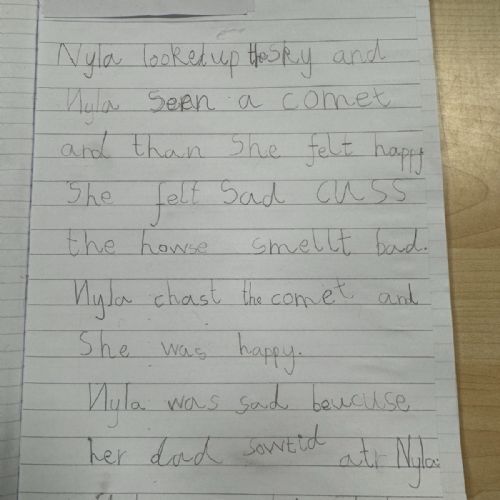 Nyla looked up the sky and
Nyla seen a comet
and than She felt happy
She felt Sad cuss
the howse smellt bad.
Nyla chast the comet and
She was happy.
Nyla was sad beucuse
her dad sowtid atr Nyla.